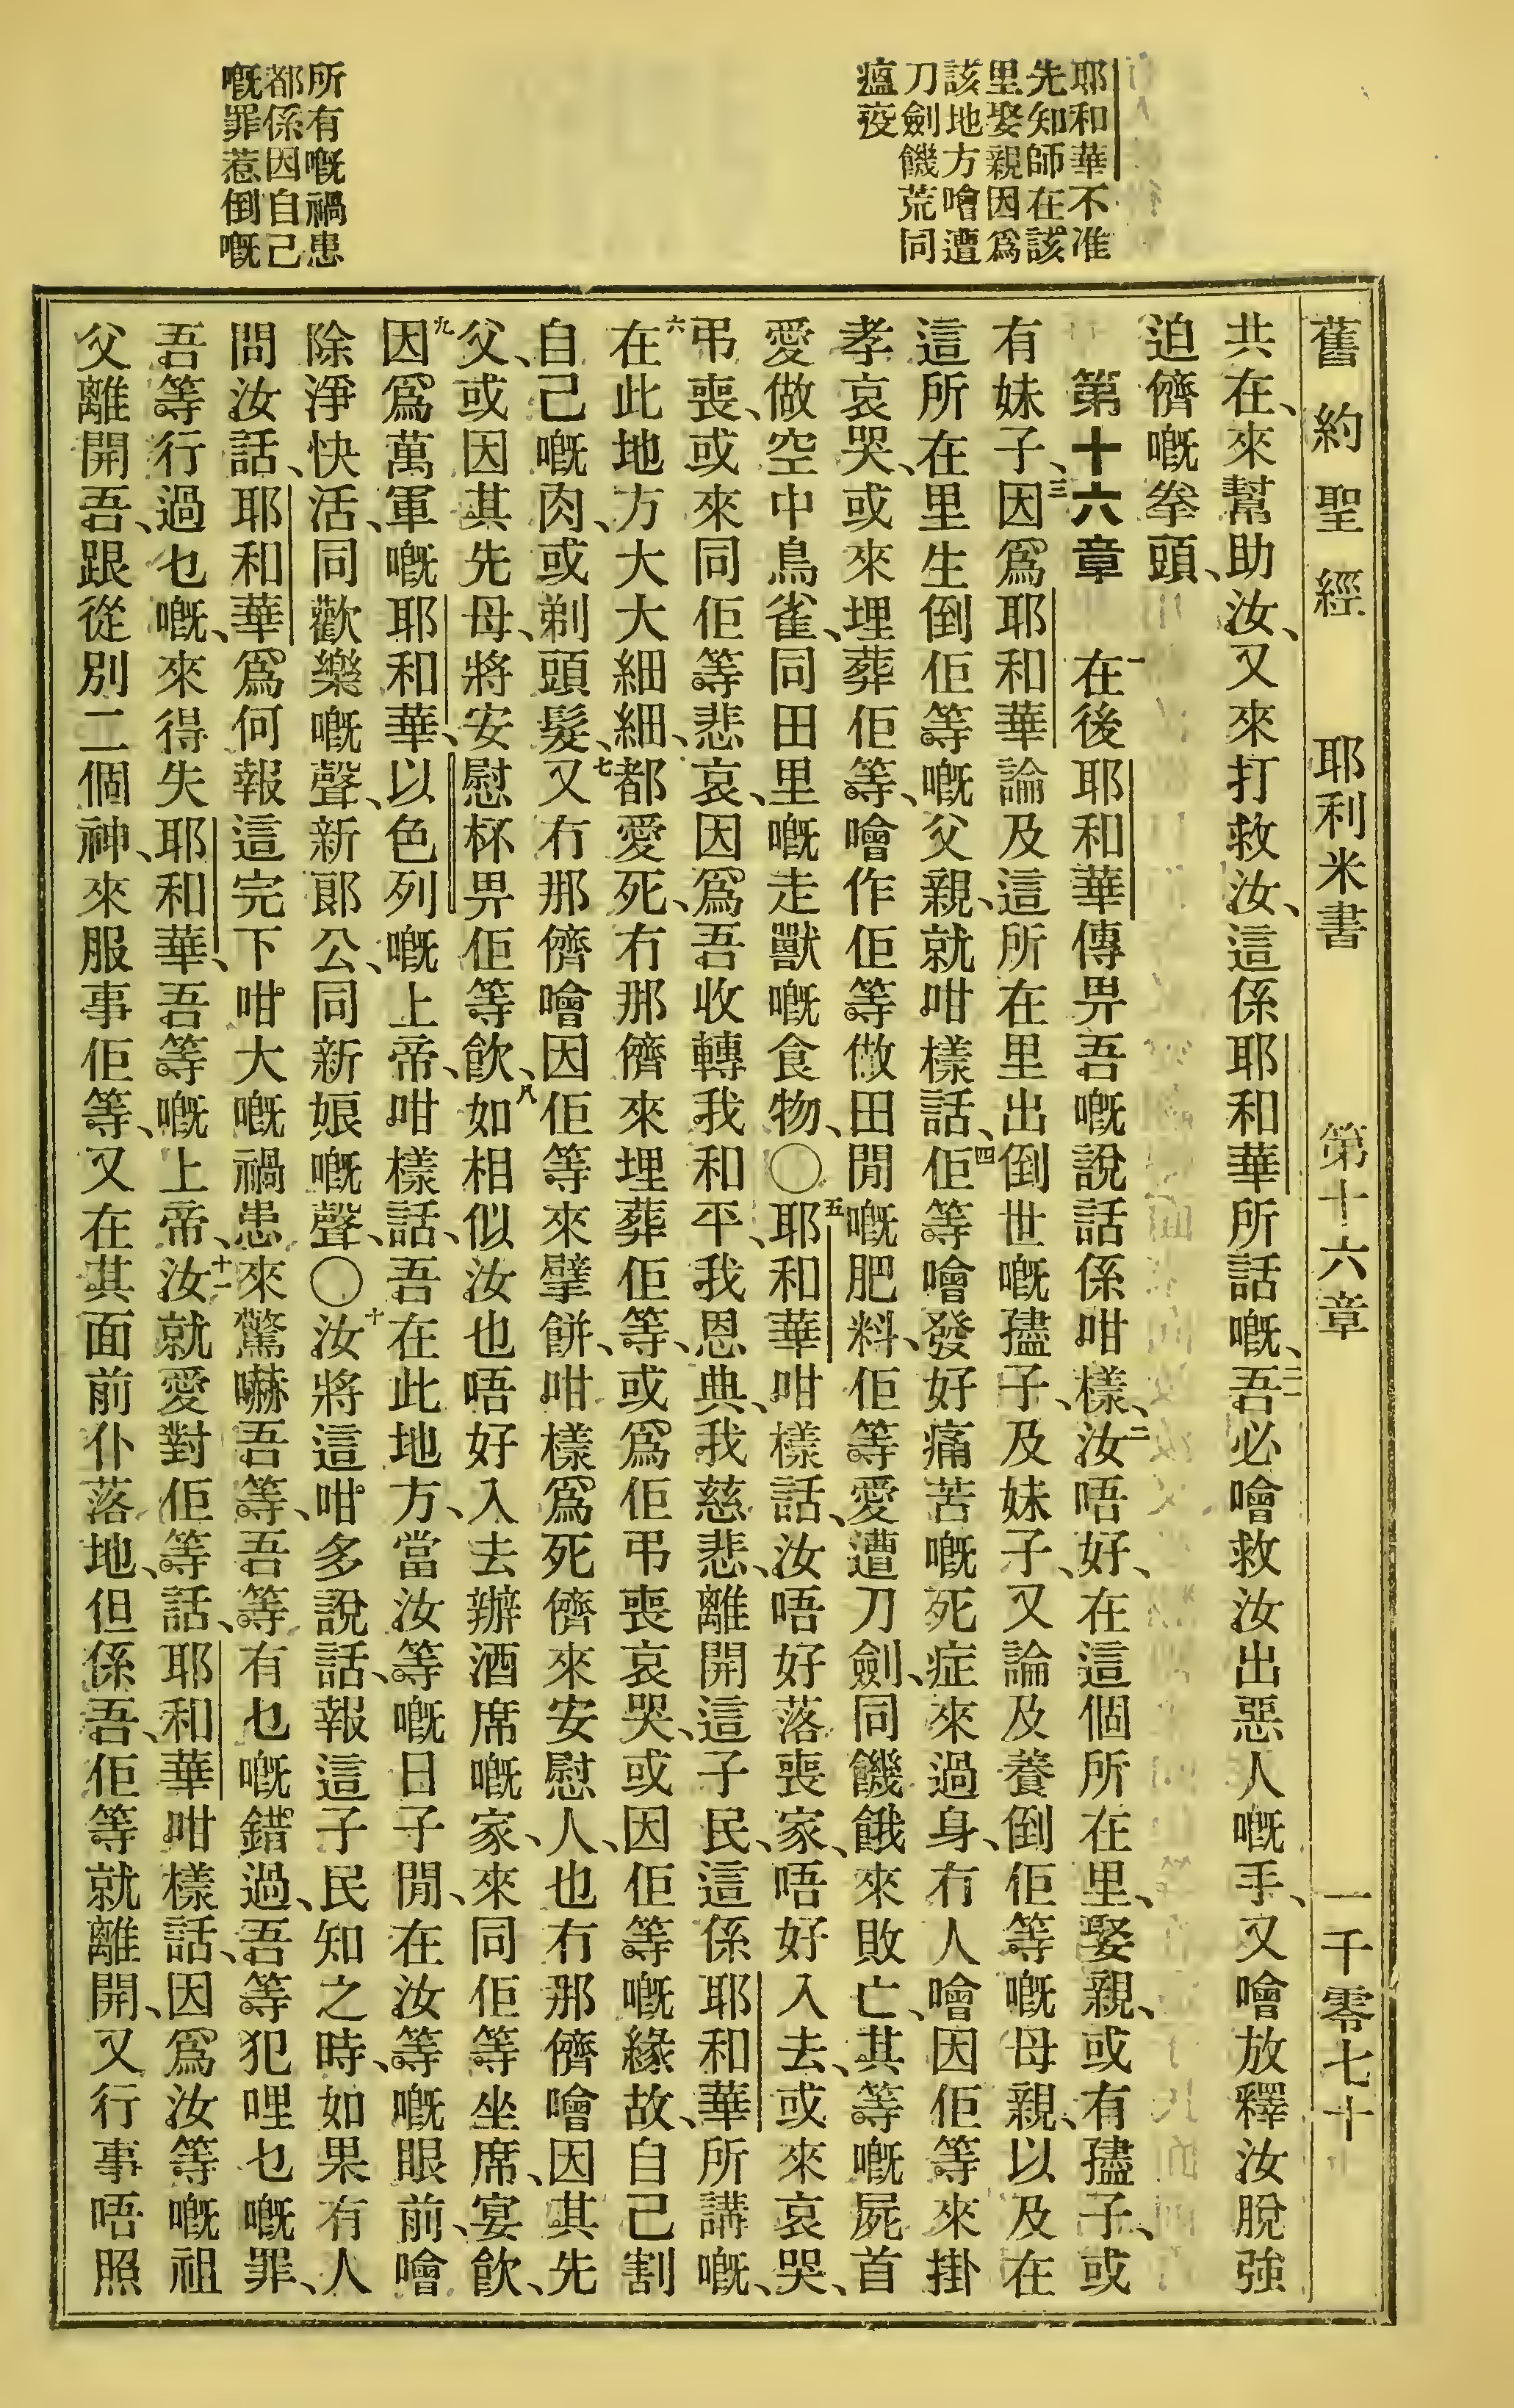 舊約聖經 耶利米書 第十六章 一千零七十
耶和華不准
先知師在該
里娶親因爲
該地方噲遭
刀劍饑荒同
瘟疫
所有嘅禍患
都係因自己
嘅罪惹倒嘅
共在、來幫助汝、又來打救汝、這係耶和華所話嘅、二一吾必噲救汝出惡人嘅手、又噲放釋汝脫強
迫儕嘅拳頭、
第十六章 一在後耶和華傳畀吾嘅說話係咁樣、二汝唔好、在這個所在里、娶親、或有孻子、或
有妹子、三因爲耶和華論及這所在里出倒世嘅孻子、及妹子、又論及養倒佢等嘅母親、以及在
這所在里生倒佢等嘅父親、就咁樣話、四佢等噲發好痛苦嘅死症來過身、冇人噲因佢等來掛
孝哀哭、或來埋葬佢等、噲作佢等做田閒嘅肥料、佢等愛遭刀劍、同饑餓來敗亡、其等嘅屍首
愛做空中鳥雀、同田里嘅走獸嘅食物、〇五耶和華咁樣話、汝唔好落喪家、唔好入去、或來哀哭、
弔喪、或來同佢等悲哀、因爲吾收轉我和平、我恩典、我慈悲、離開這子民、這係耶和華所講嘅、
六在此地方大大細細、都愛死、冇那儕來埋葬佢等、或爲佢弔喪哀哭、或因佢等嘅緣故、自己割
自己嘅肉、或剃頭髮、七又冇那儕噲因佢等來擘餅、咁樣爲死儕來安慰人、也冇那儕噲因其先
父、或因其先母、將安慰杯畀佢等飲、八如相似汝也唔好入去辦酒席嘅家、來同佢等坐席、宴飲、
九因爲萬軍嘅耶和華、以色列嘅上帝、咁樣話、吾在此地方、當汝等嘅日子閒、在汝等嘅眼前、噲
除淨快活、同歡樂嘅聲、新郎公、同新娘嘅聲、〇十汝將這咁多說話、報這子民知之時、如果有人
問汝話、耶和華爲何報這完下咁大嘅禍患來驚嚇吾等、吾等有乜嘅錯過、吾等犯哩乜嘅罪、
吾等行過乜嘅、來得失耶和華、吾等嘅上帝、十一汝就愛對佢等話、耶和華咁樣話、因爲汝等嘅祖
父離開吾、跟從別二個神、來服事佢等、又在其面前仆落地、但係吾、佢等就離開、又行事唔照